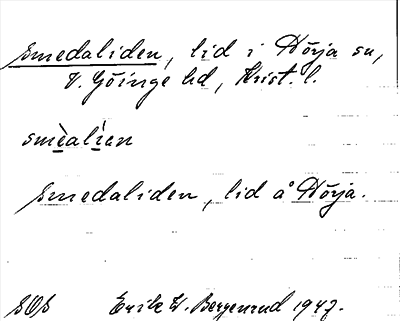 Smedaliden, lid i Hörja sn,
V. Göinge hd, Krist. l.
smèalìen
Smedaliden, lid å Hörja.
SOS Erik W. Bergenrud 1947.